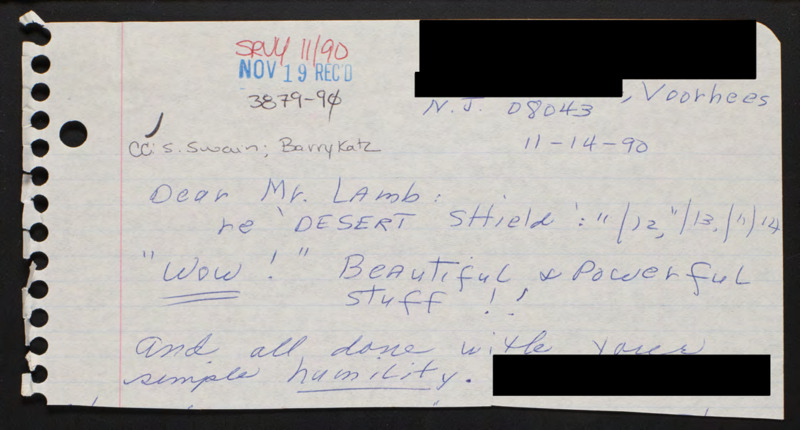 SRVY 11/90
NOV 19 REC'D
3879-90
, Voorhees
N.J. 08043
11-14-90
CC: S. Swain; Barry Katz
Dear Mr. LAmb:
re 'DESERT SHield': "/12, "/13, (11)/14
"Wow!" BeAutiful & Powerful
stuff !!
And all done with your
simple humility.